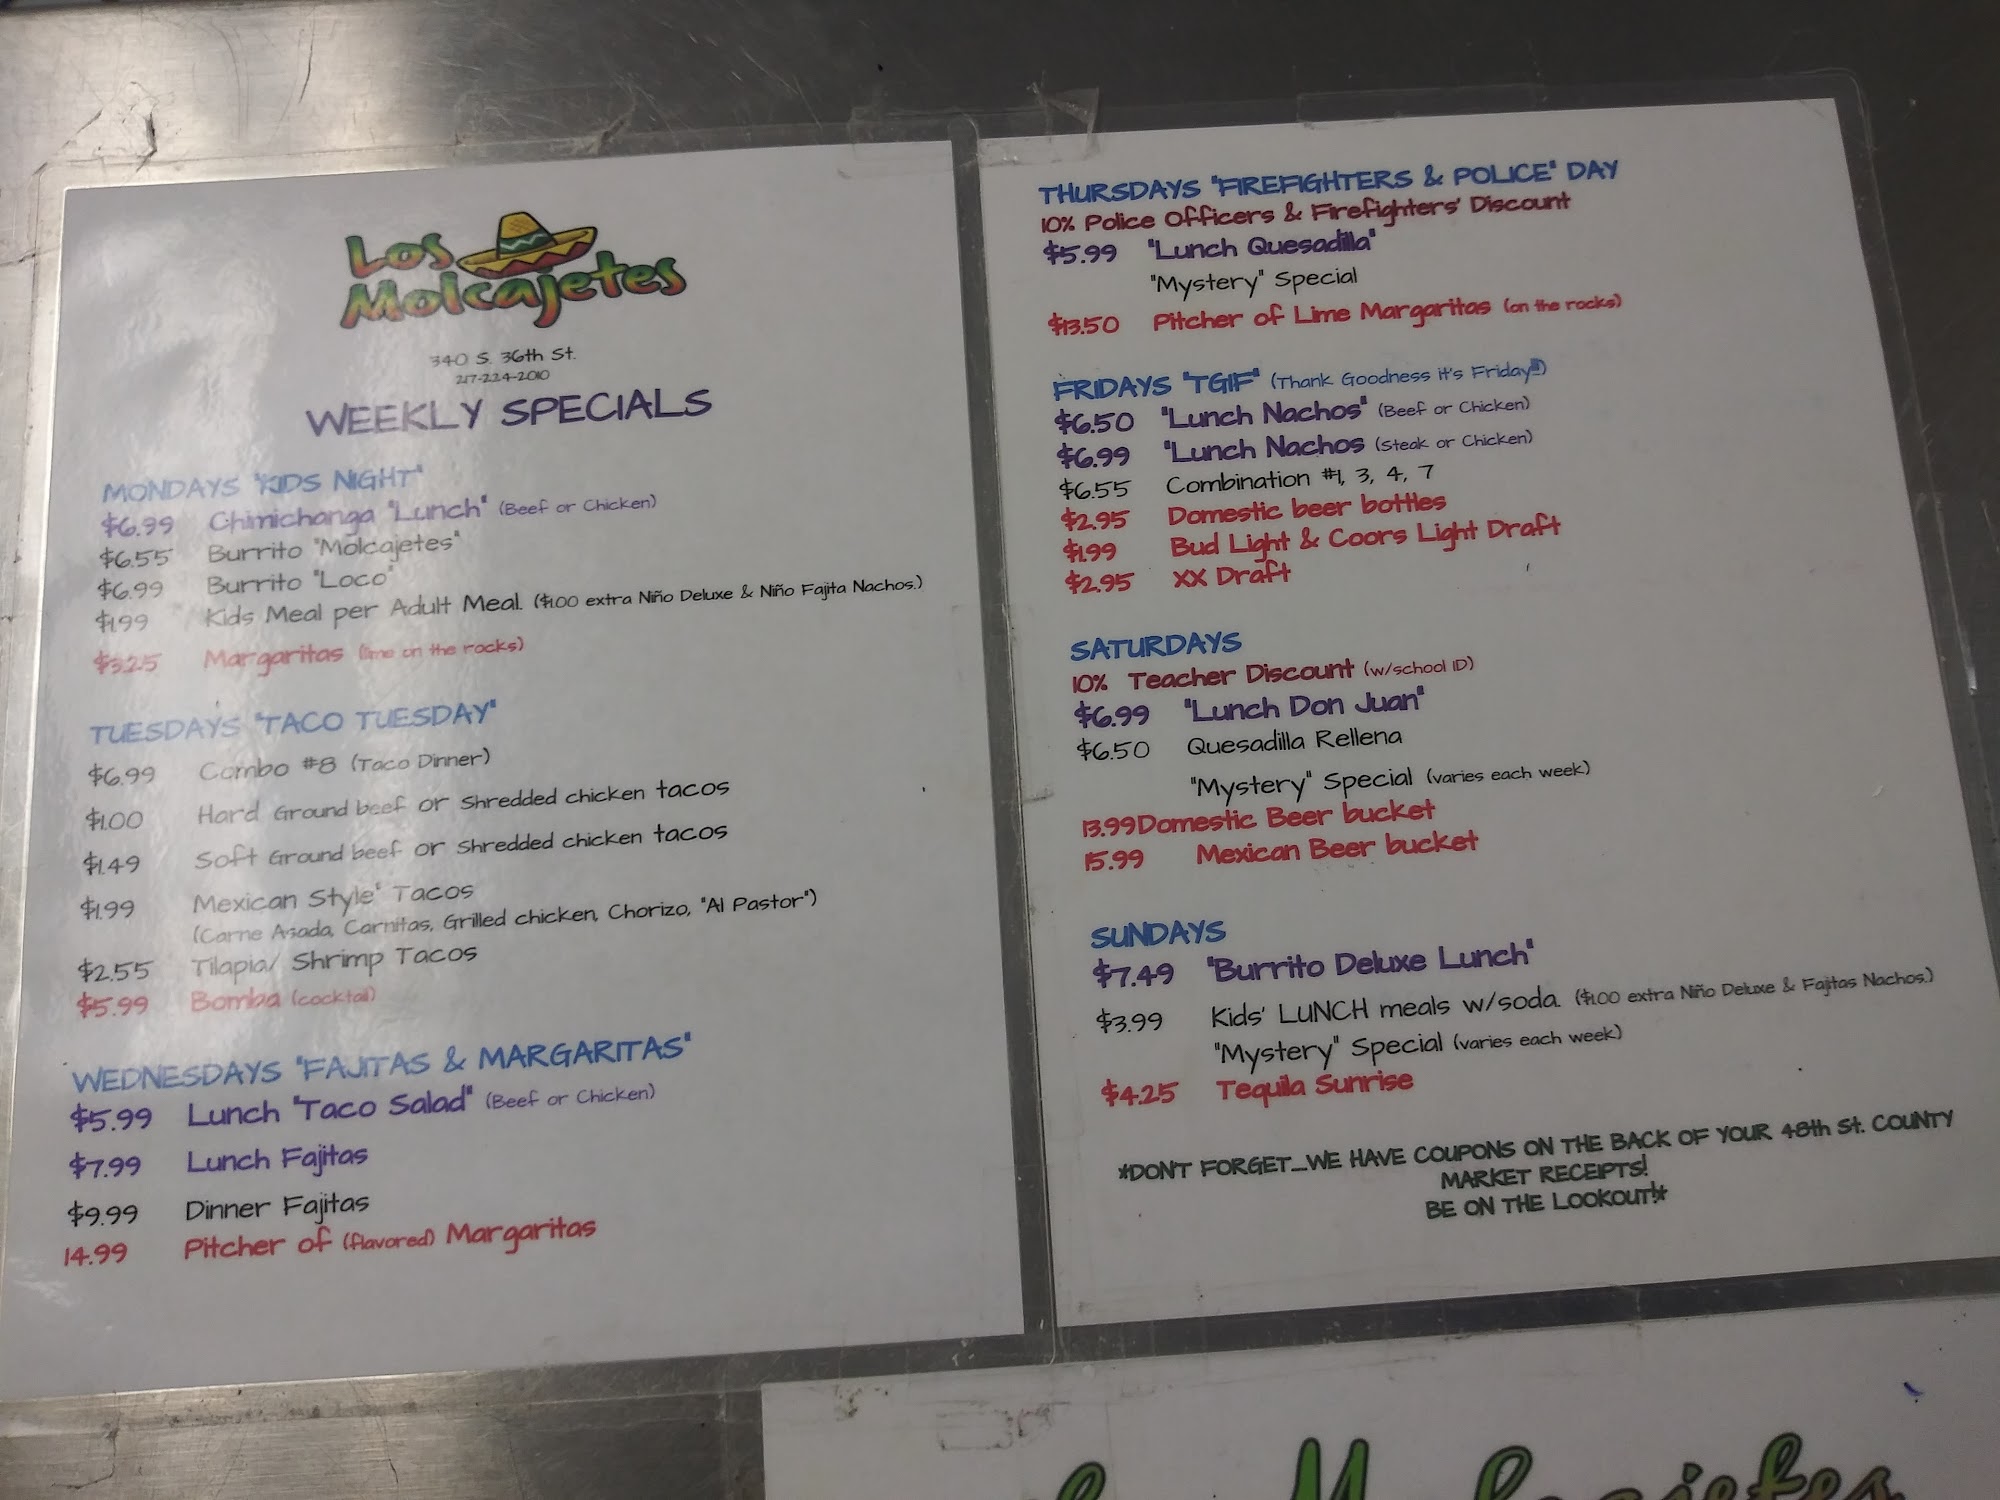 Los Molcajetes
340 S. 36th St.
217-224-2010
WEEKLY SPECIALS
MONDAYS "KIDS NIGHT"
$6.99 Chimichanga "Lunch" (Beef or Chicken)
$6.55 Burrito "Molcajetes"
$6.99 Burrito "Loco"
$1.99 Kids Meal per Adult Meal. ($1.00 extra Niño Deluxe & Niño Fajita Nachos.)
$3.25 Margaritas (lime on the rocks)
TUESDAYS "TACO TUESDAY"
$6.99 Combo #8 (Taco Dinner)
$1.00 Hard Ground beef or Shredded chicken tacos
$1.49 Soft Ground beef or Shredded chicken tacos
$1.99 Mexican Style" Tacos
(Carne Asada, Carnitas, Grilled chicken, Chorizo, "Al Pastor")
$2.55 Tilapia/ Shrimp Tacos
$5.99 Bomba (cocktail)
WEDNESDAYS "FAJITAS & MARGARITAS"
$5.99 Lunch "Taco Salad" (Beef or Chicken)
$7.99 Lunch Fajitas
$9.99 Dinner Fajitas
14.99 Pitcher of (flavored) Margaritas
THURSDAYS "FIREFIGHTERS & POLICE" DAY
10% Police Officers & Firefighters' Discount
$5.99 "Lunch Quesadilla"
"Mystery" Special
$13.50 Pitcher of Lime Margaritas (on the rocks)
FRIDAYS "TGIF" (Thank Goodness it's Friday!!)
$6.50 "Lunch Nachos" (Beef or Chicken)
$6.99 "Lunch Nachos (Steak or Chicken)
$6.55 Combination #1, 3, 4, 7
$2.95 Domestic beer bottles
$1.99 Bud Light & Coors Light Draft
$2.95 XX Draft
SATURDAYS
10% Teacher Discount (w/school ID)
$6.99 "Lunch Don Juan"
$6.50 Quesadilla Rellena
"Mystery" Special (varies each week)
13.99 Domestic Beer bucket
15.99 Mexican Beer bucket
SUNDAYS
$7.49 "Burrito Deluxe Lunch"
$3.99 Kids' LUNCH meals w/soda. ($1.00 extra Niño Deluxe & Fajitas Nachos.)
"Mystery" Special (varies each week)
$4.25 Tequila Sunrise
*DON'T FORGET...WE HAVE COUPONS ON THE BACK OF YOUR 48th St. COUNTY
MARKET RECEIPTS!
BE ON THE LOOKOUT!*